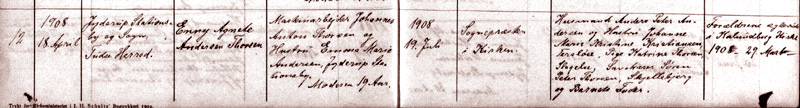 12
1908
18 April
Jyderup Stations-
by og Sogn,
Tuse Herred.
Enny Agnete
Andersen Thorsen
Maskinarbejder Johannes
Anton Thorsen og
Hustru Emma Marie
Andersen, Jyderup Sta-
tionsby.
Moderen 19 Aar.
1908
19. Juli
Sognepræsten
i Kirken.
Husmand Anders Peter An-
dersen og Hustru Johanne
Maren Kirstine Kristiansen,
Pige Katrine Thorsen,
Søren
Peter Thorsen, Skjellebjerg
og Barnets Fader.
Forældrene
i Kalundborg Kirke
1908 29 Marts
Trykt for Kirkeministeriet i J. H. Schultz' Bogtrykkeri 1904.